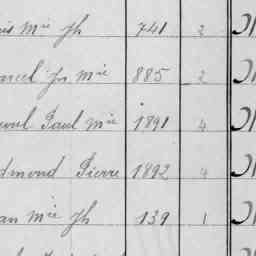 is Mie Jh 741 2
arcel Jn Mie 885 2
Paul Mie 1891 4
dmond Pierre 1892 4
an Mie Jh 139 1